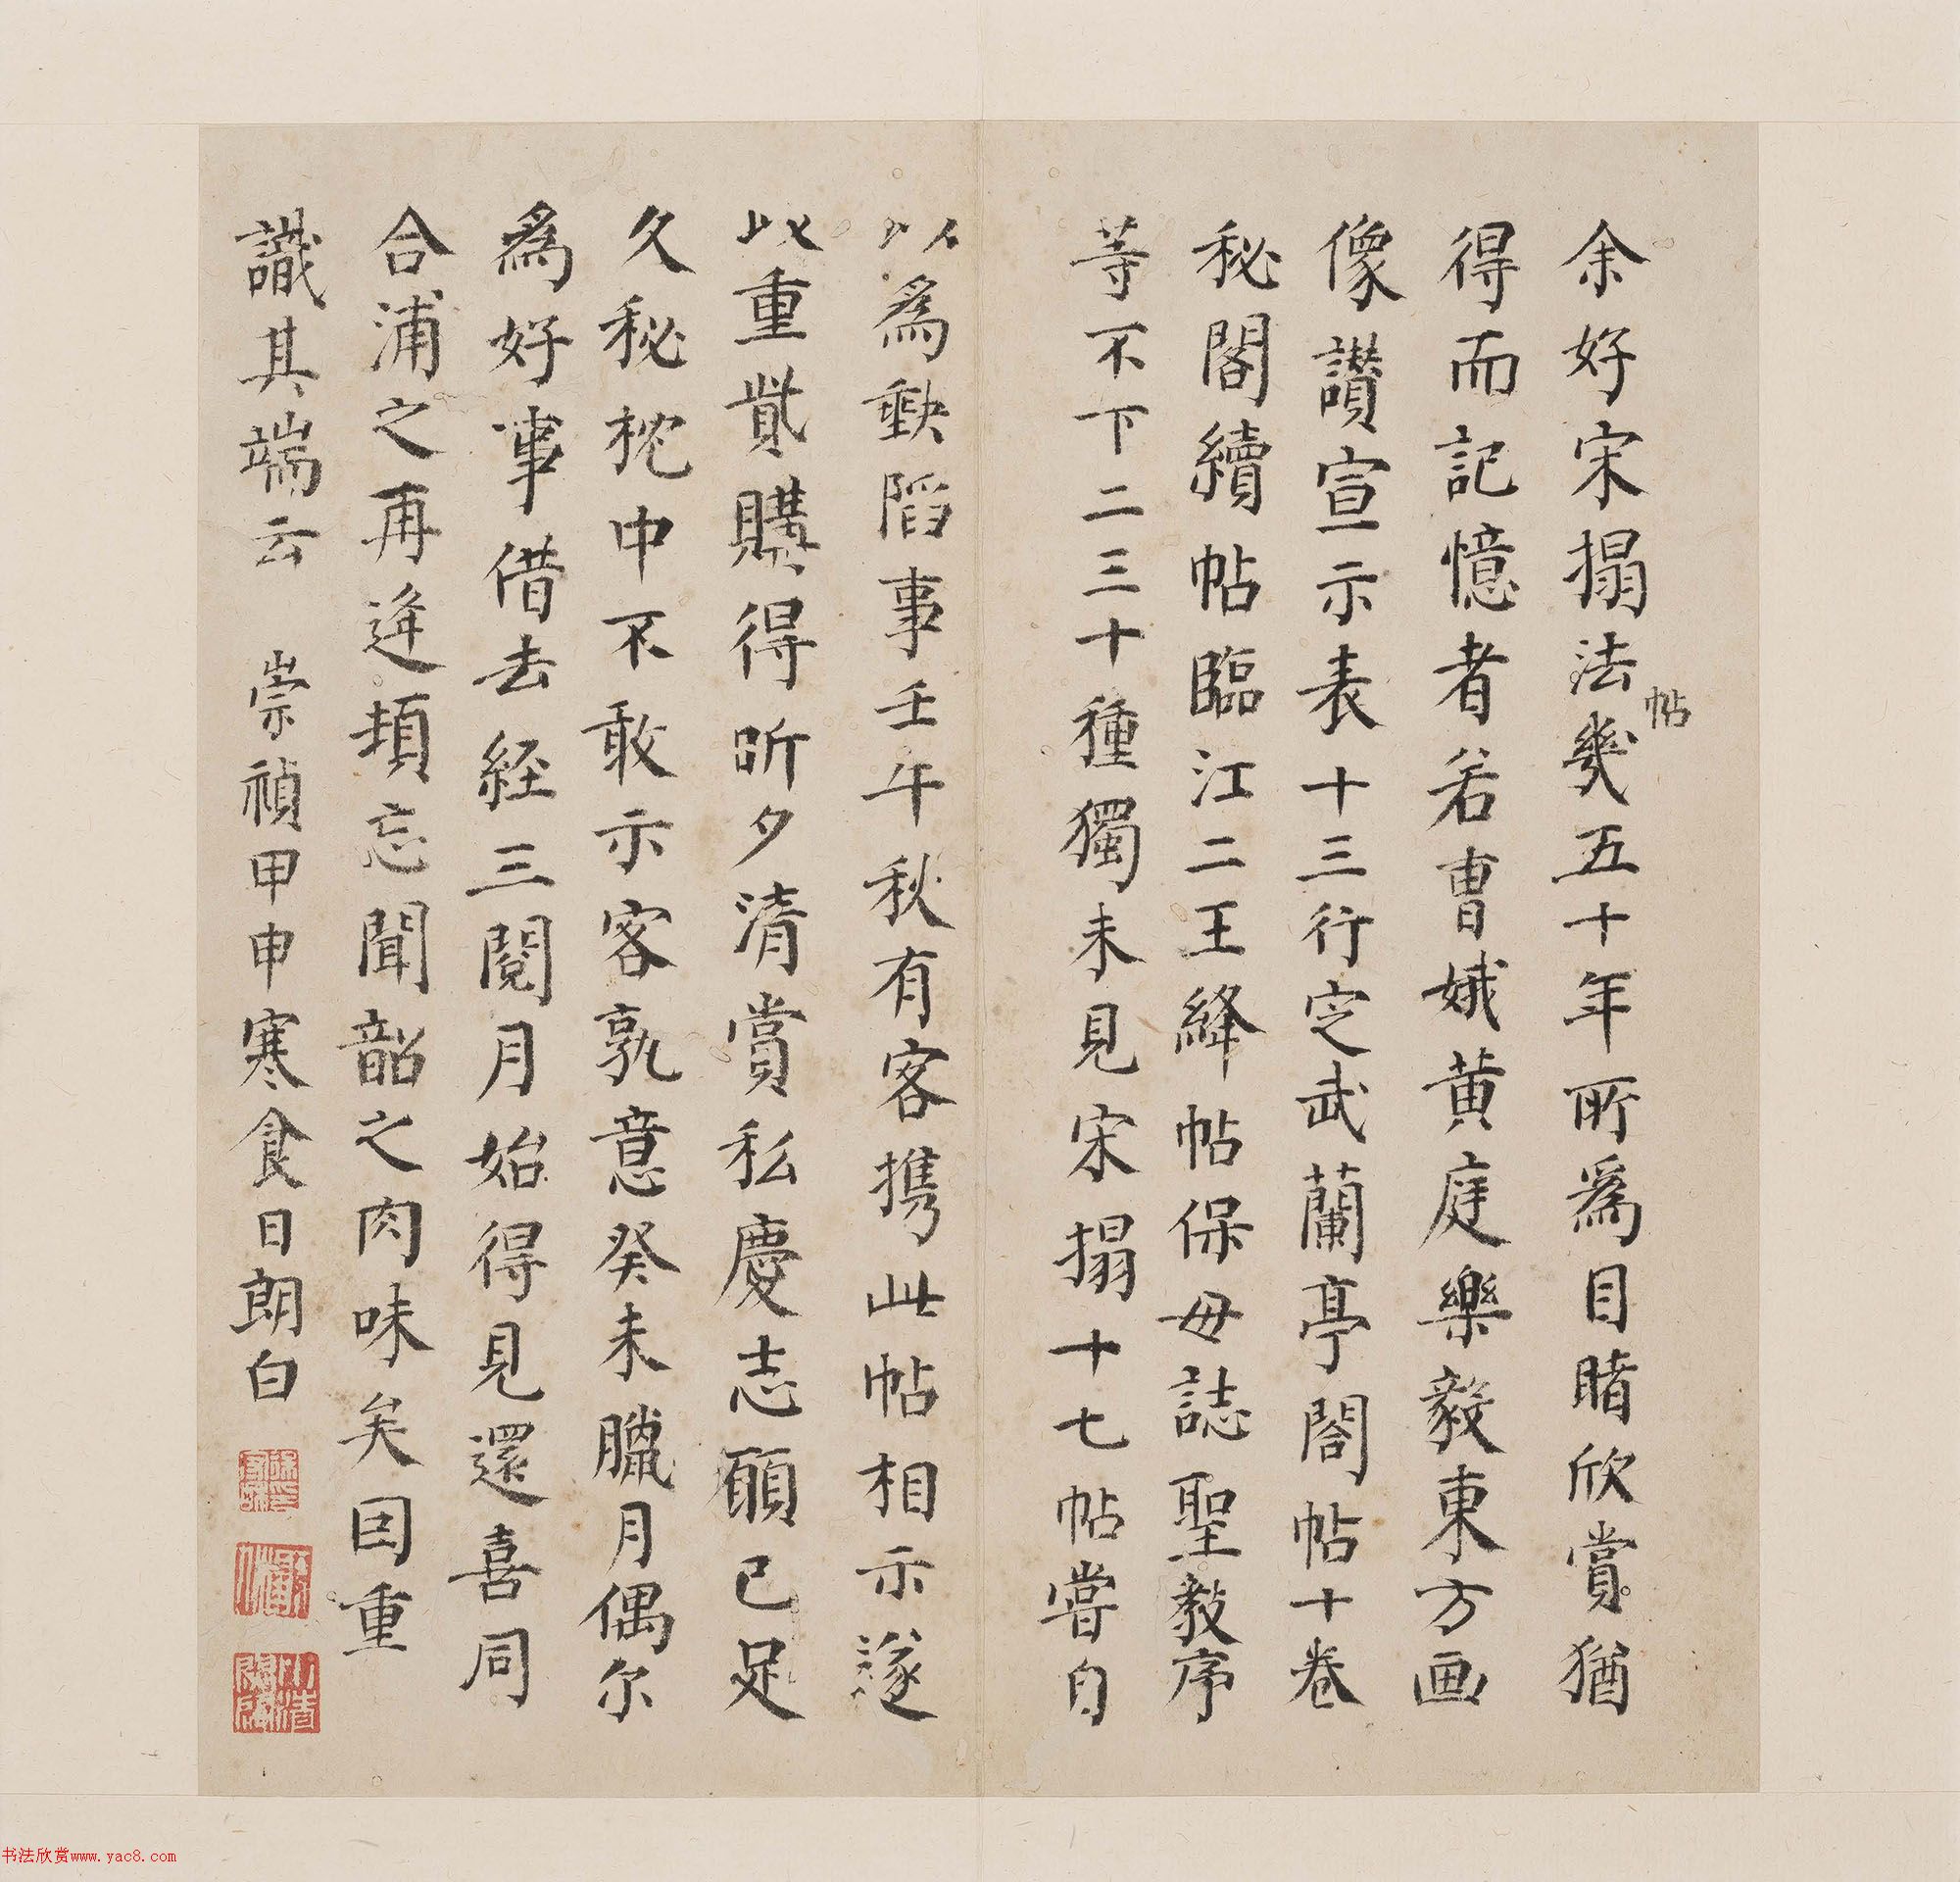 余好宋搨法帖幾五十年所爲目睹欣賞猶
得而記憶者若曹娥黄庭樂毅東方画
像讃宣示表十三行定武蘭亭閣帖十卷
秘閣續帖臨江二王絳帖保母誌聖教序
等不下二三十種獨未見宋搨十七帖嘗自
以爲缺陷事壬午秋有客携此帖相示遂
以重貲購得昕夕清賞私慶志願已足
久秘枕中不敢示客孰意癸未臘月偶尔
爲好事借去経三閱月始得見還喜同
合浦之再逢頓忘聞韶之肉味矣因重
識其端云 崇禎甲申寒食日朗白
书法欣赏www.yac8.com